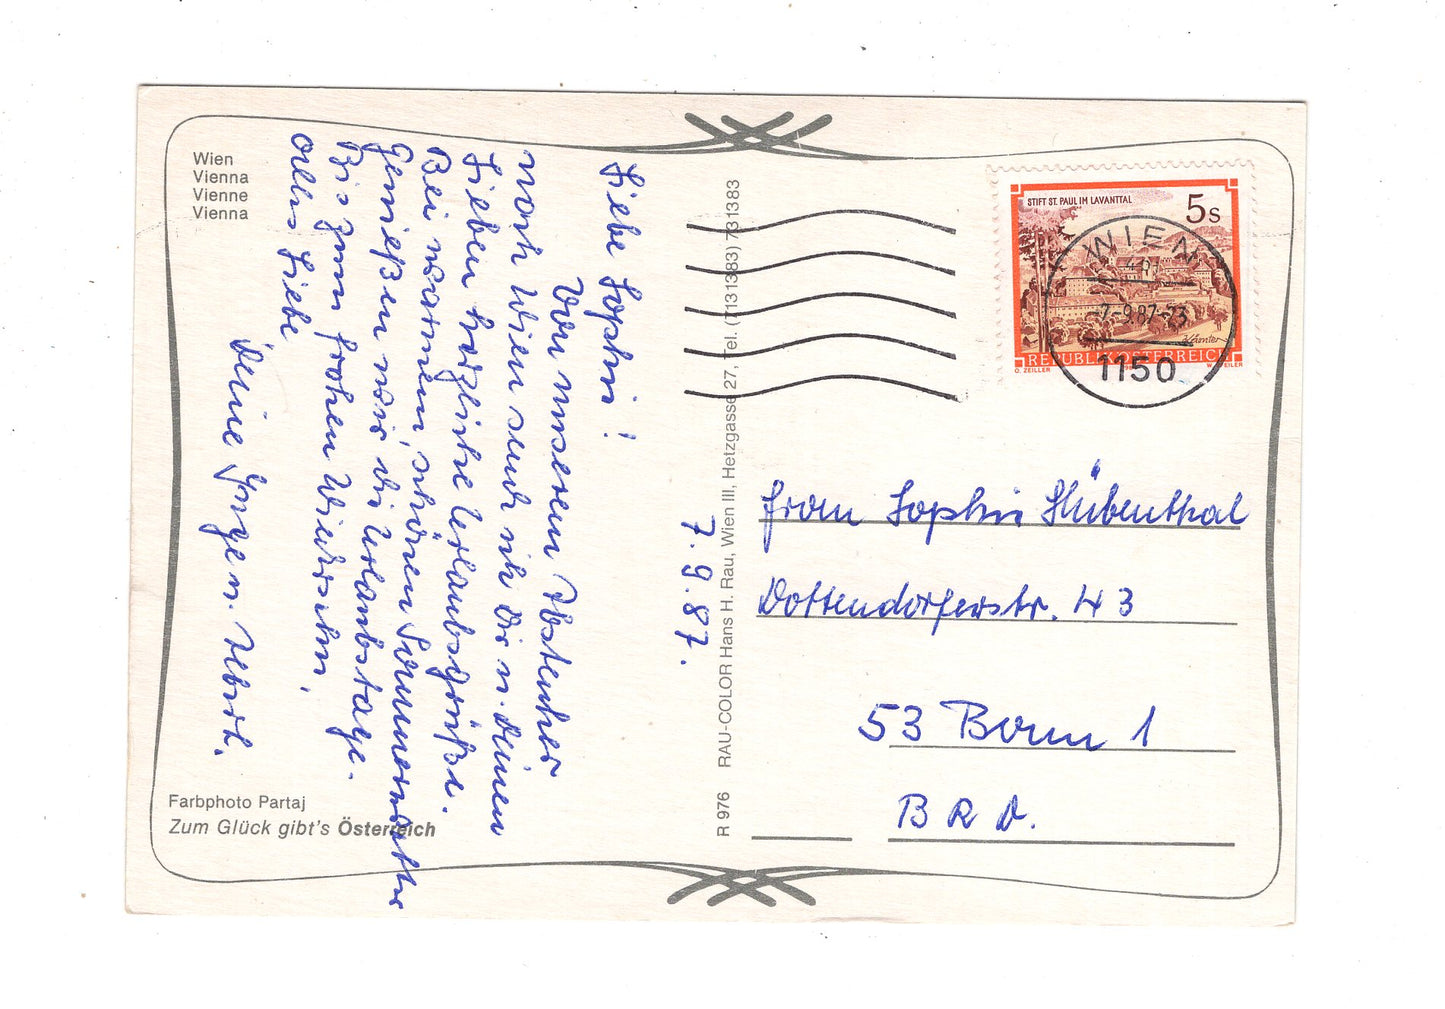 Wien
Vienna
Vienne
Vienna
7.9.87.
Liebe Sophie!
Von unserem Abstecher
nach Wien sende ich Dir u. Deinen
Lieben herzliche Urlaubsgrüße.
Bei warmen, schönen Sommerwetter
genießen wir die Urlaubstage.
Bis zum frohen Wiedersehn,
alles Liebe
Deine Inge u.
Farbphoto Partaj
Zum Glück gibt's Österreich
R 976 RAU-COLOR Hans H. Rau, Wien III, Hetzgasse 27, Tel. (7131383) 731383
STIFT ST. PAUL IM LAVANTTAL
5s
REPUBLIK ÖSTERREICH
O. ZEILLER
WIEN
-7.-9.87-23
1150
Frau Sophie Hübenthal
Dottendorferstr. 43
53 Bonn 1
BRD.